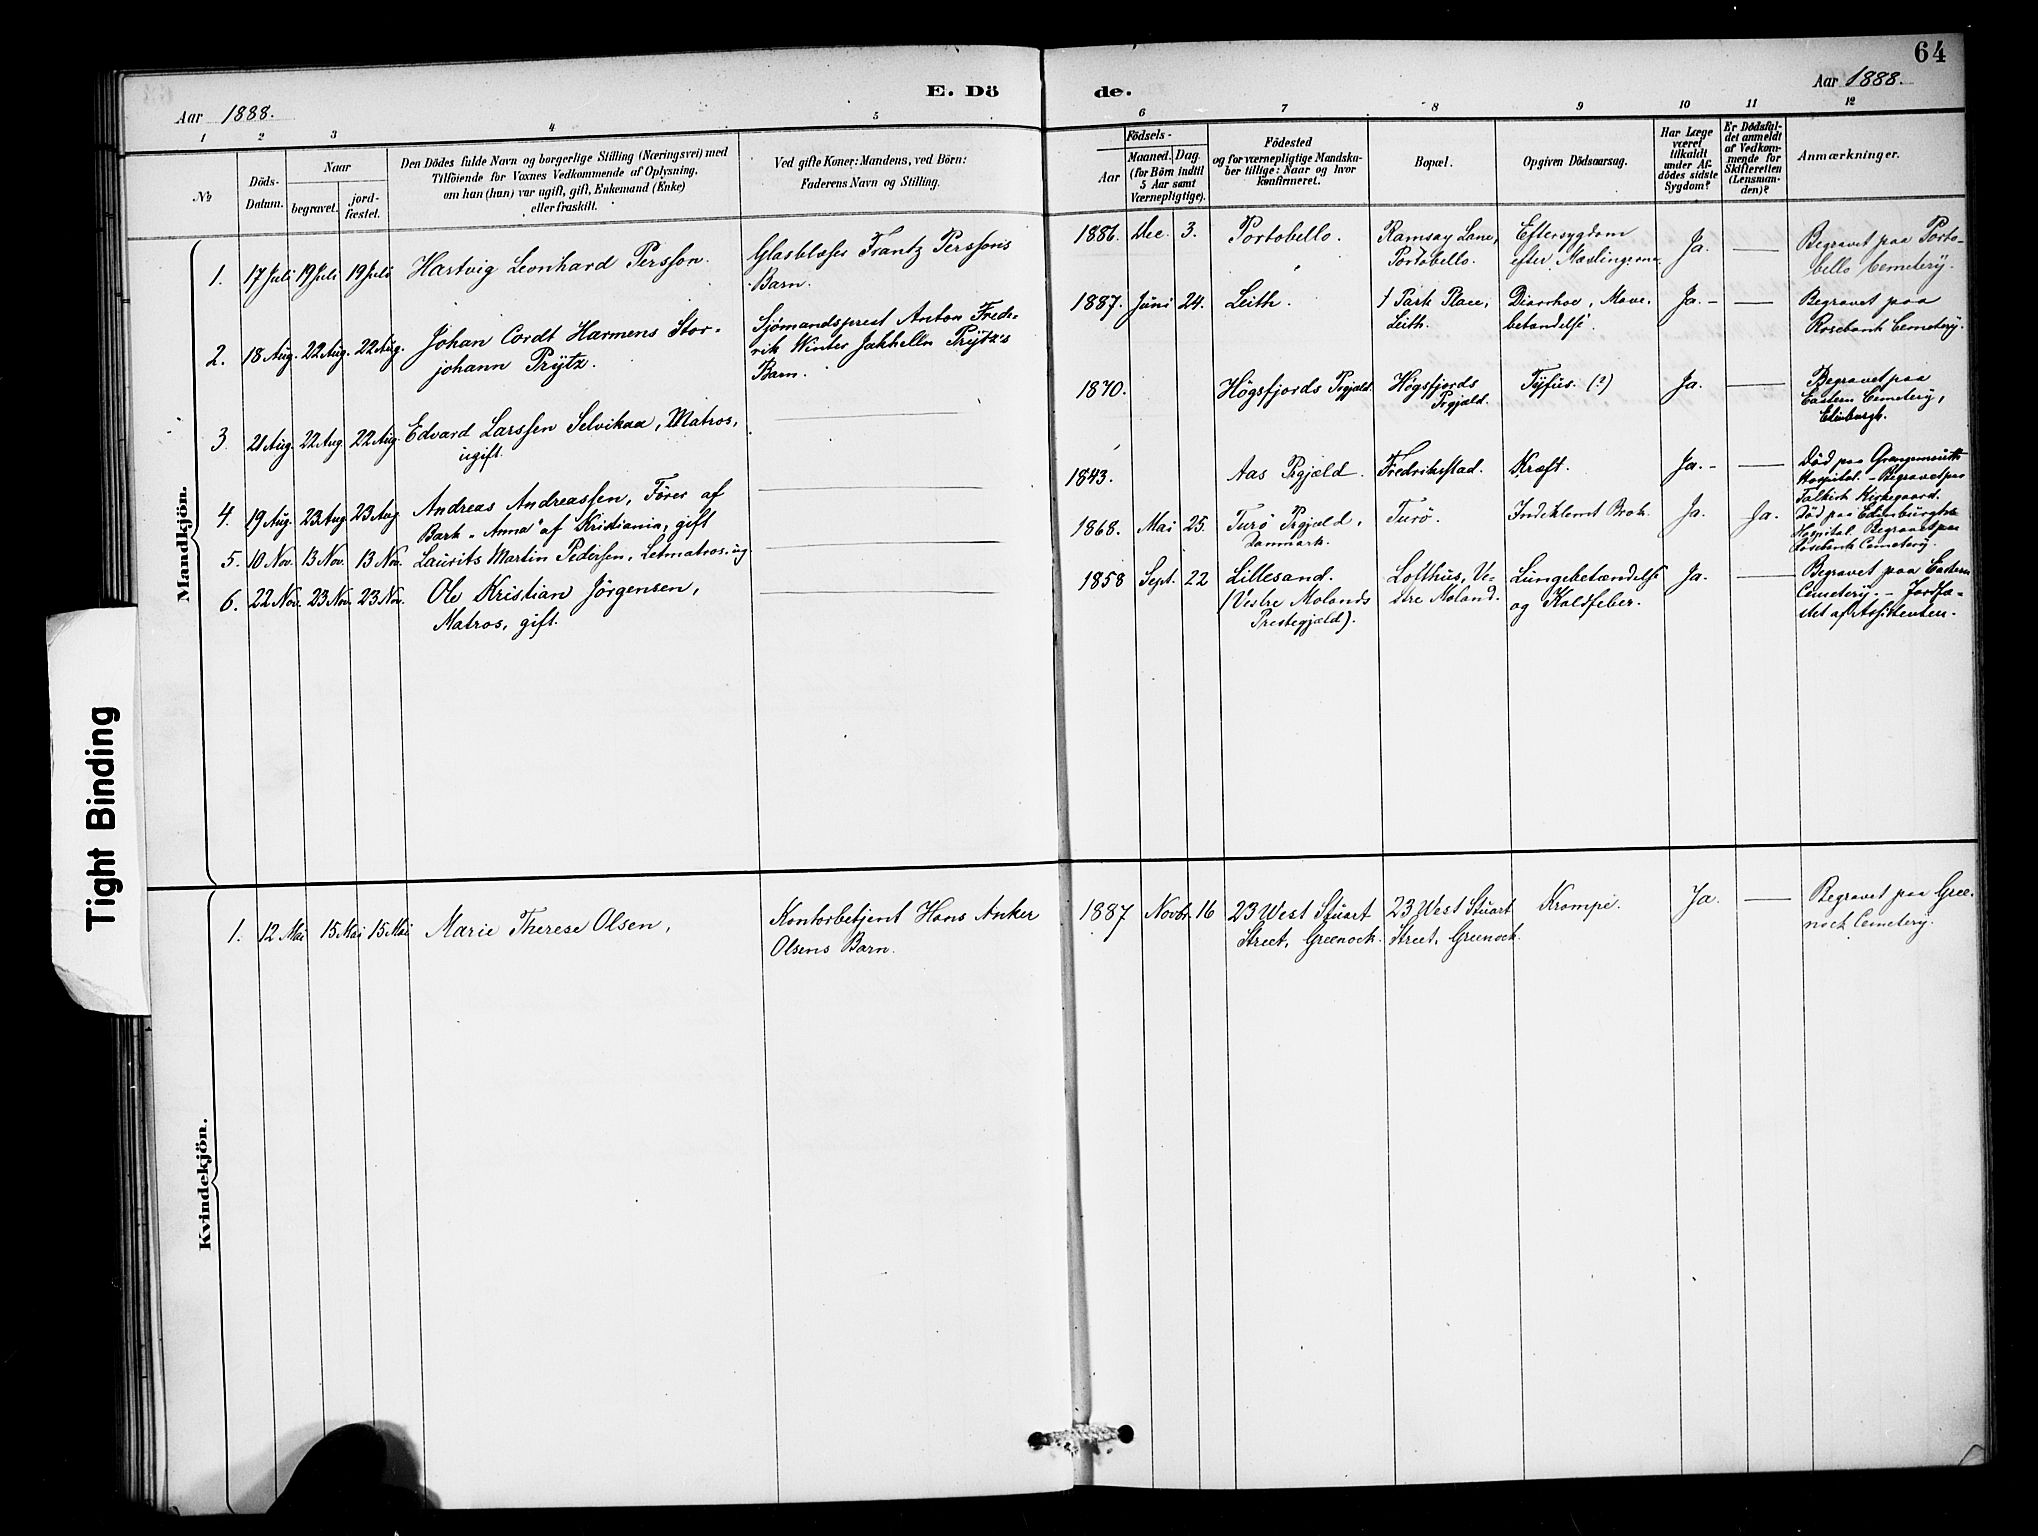 64
E. Dö de.
Aar 1888.
Aar 1888.
1 2 3 4 5 6 7 8 9 10 11 12
No
Döds-
Datum.
Naar
begravet.
jord-
fæstet.
Den Dödes fulde Navn og borgerlige Stilling (Næringsvei) med
Tilföiende for Voxnes Vedkommende af Oplysning,
om han (hun) var ugift, gift, Enkemand (Enke)
eller fraskilt.
Ved gifte Koner: Mandens, ved Börn:
Faderens Navn og Stilling.
Födsels-
Aar
Maaned. Dag
(for Börn indtil
5 Aar samt
Værnepligtige).
Födested
og for værnepligtige Mandska-
ber tillige: Naar og hvor
konfirmeret.
Bopæl.
Opgiven Dödsaarsag.
Har Læge
været
tilkaldt
under Af-
dödes sidste
Sygdom?
Er Dödsfal-
det anmeldt
af Vedkom-
mende for
Skifteretten
(Lensman-
den)?
Anmærkninger.
Mandkjön.
1. 17 Juli 19 Juli 19 Juli Hartvig Leonhard Persson.
Glasblæser Frantz Persson's
Barn.
1886. Dec. 3. Portobello.
Ramsay Lane,
Portobello.
Eftersygdom
efter Mæslingerne
Ja. —
Begravet paa Porto-
bello Cemetery.
2. 18 Aug. 22 Aug. 22 Aug. Johan Cordt Harmens Stor-
johann Prÿtz.
Sjömandsprest Anton Fred-
rik Winter Jakhelln Prÿtz's
Barn.
1887. Juni 24. Leith.
1 Park Place,
Leith.
Diarrhoe, Mave-
betændelse.
Ja. — —
Begravet paa
Rosebank Cemetery.
3 21 Aug. 22 Aug. 22 Aug. Edvard Larssen Selvikaa, Matros,
ugift.
1870. Högsfjords Prgjæld.
Högsfjords
Prgjæld.
Tÿfus. (?)
Ja. —
Begravet paa
Eastern Cemetery,
Edinburgh.
4. 19 Aug. 23 Aug. 23 Aug. Andreas Andreassen, Förer af
Bark "Anna" af Kristiania, gift
1843. Aas Prgjæld. Fredrikstad. Kræft. Ja. — —
Död paa Grangemouth
Hospital. — Begravet paa
Falkirk Kirkegaard.
5. 10 Nov. 13 Nov. 13 Nov. Laurits Martin Pedersen, Letmatros, ug
1868. Mai 25. Turö Prgjæld,
Danmark.
Turö. Indeklemt Brok. Ja. Ja.
Död paa Edinburghs
Hospital. Begravet paa
Rosebank Cemetery.
6. 22 Nov. 23 Nov. 23 Nov. Ole Kristian Jörgensen,
Matros, gift.
1858 Sept. 22 Lillesand.
(Vestre Molands
Prestegjæld).
Lofthus, Ve-
stre Moland.
Lungebetændelse
og Koldfeber.
Ja. —
Begravet paa Eastern
Cemetery. — Jordfæ-
stet af Assistenten.
Kvindekjön.
1. 12 Mai 15 Mai 15 Mai Marie Therese Olsen,
Kontorbetjent Hans Anker
Olsens Barn.
1887 Novbr. 16 23 West Stuart
Street, Greenock.
23 West Stuart
Street, Greenock.
Krampe. Ja. —
Begravet paa Gree-
nock Cemetery.
Tight Binding